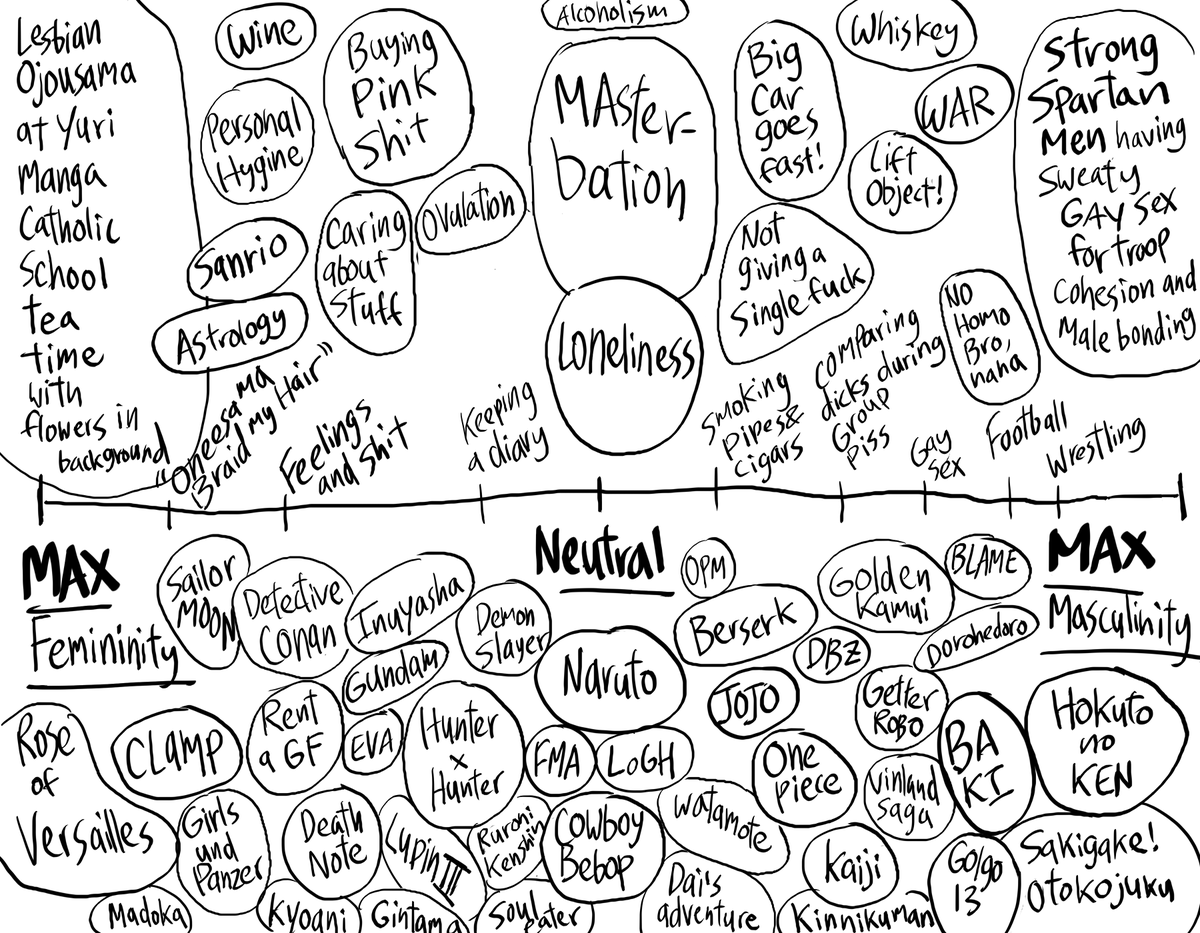 Lesbian
Ojousama
at Yuri
Manga
Catholic
School
tea
time
with
flowers in
background
Wine
Personal
Hygine
Buying
Pink
Shit
Sanrio
Astrology
Caring
about
Stuff
Ovulation
"Oneesama
Braid my Hair"
Feelings
and Shit
Keeping
a diary
Alcoholism
MAster-
bation
Loneliness
Big
Car
goes
fast!
Whiskey
WAR
Lift
Object!
Not
giving a
Single fuck
NO
Homo
Bro,
haha
Strong
Spartan
Men having
Sweaty
GAY Sex
for troop
Cohesion and
Male bonding
Smoking
Pipes &
Cigars
Comparing
dicks during
Group
Piss
Gay
Sex
Football
Wrestling
MAX
Femininity
Neutral
MAX
Masculinity
Sailor
MOON
Detective
Conan
Inuyasha
Gundam
Demon
Slayer
Naruto
OPM
Berserk
DBZ
Golden
Kamui
BLAME
Dorohedoro
Rose
of
Versailles
CLAMP
Rent
a GF
EVA
Hunter
x
Hunter
FMA
LoGH
JOJO
One
piece
Getter
ROBO
Vinland
Saga
BA
KI
Hokuto
no
KEN
Girls
und
Panzer
Death
Note
Lupin III
Ruroni
Kenshin
Cowboy
Bebop
Watamote
Kaiji
Golgo
13
Sakigake!
Otokojuku
Madoka
Kyoani
Gintama
Soul
eater
Dai's
adventure
Kinnikuman